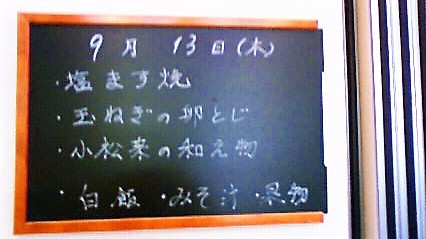 9月 13日(木)
・塩ます焼
・玉ねぎの卵とじ
・小松菜の和え物
・白飯 ・みそ汁 ・果物